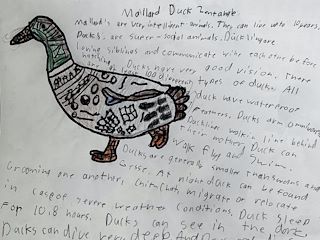 Mallard Duck Zentangle
Mallard's are very intelligent animals. They can live upto 10years.
Ducks are super-social animals. Ducklings are
Loving siblings and communicate with eachother before
hatching. Ducks have very good vision. There
are at least 100 different types of ducks. All
duck have waterproof
feathers. Ducks are omnivores
Ducklings walk in line behind
their mother. Duck can
walk fly and swim.
Ducks are generally smaller than swans and
Geese. At night duck can be found
Grooming one another, chitchat, migrate or relocate
in case of severe weather conditions. Duck sleep
for 10.8 hours. Ducks can see in the dark
Ducks can dive very deep And